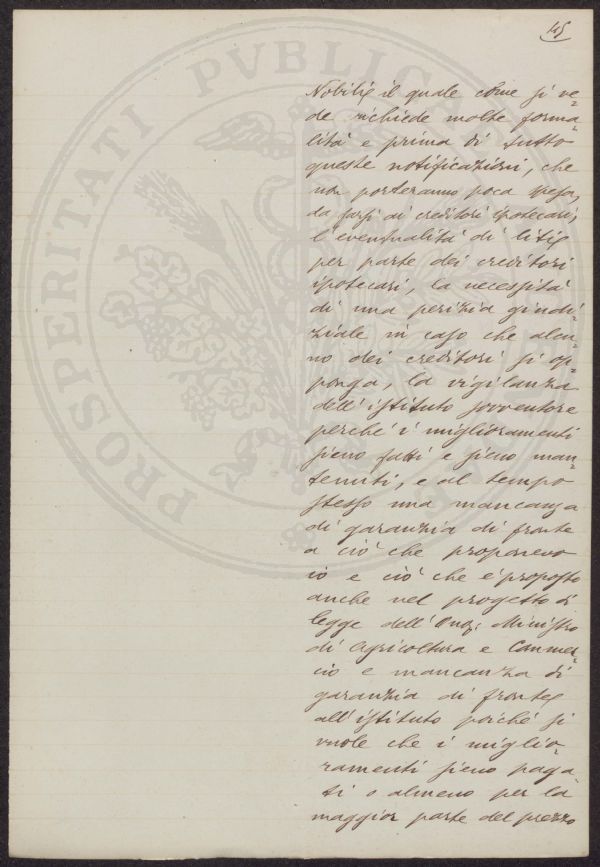 145
Nobili, il quale come si ve-
de richiede molte forma-
lità e prima di tutto
queste notificazioni, che
non porteranno poca spesa,
da farsi ai creditori ipotecari,
l'eventualità di liti
per parte dei creditori
ipotecari, la necessità
di una perizia giudi-
ziale in caso che alcu-
no dei creditori si op-
ponga, la vigilanza
dell'istituto sovventore
perché i miglioramenti
sieno fatti e sieno man-
tenuti, e al tempo
stesso una mancanza
di garanzia di fronte
a ciò che proponevo
io e ciò che è proposto
anche nel progetto di
legge dell'On. Ministro
di Agricoltura e Commer-
cio e mancanza di
garanzia di fronte
all'istituto poiché si
vuole che i miglio-
ramenti sieno paga-
ti o almeno per la
maggior parte del prezzo
PROSPERITATI PVBLICAE